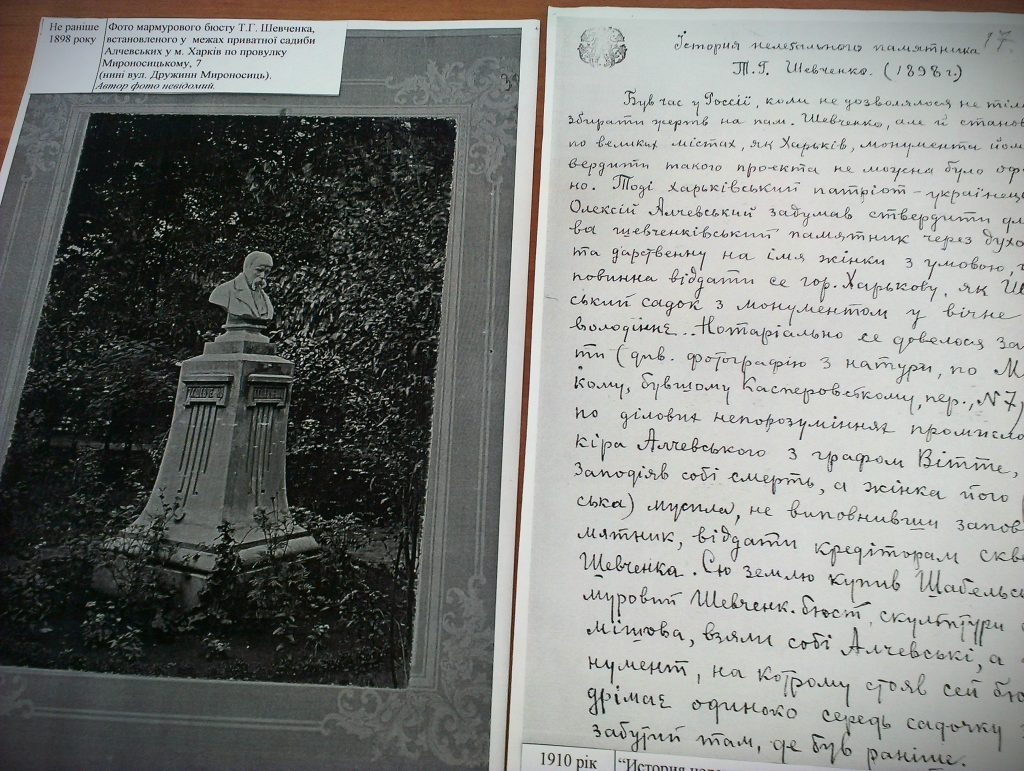 Не раніше 1898 року
Фото мармурового бюсту Т.Г. Шевченка,
встановленого у межах приватної садиби
Алчевських у м. Харків по провулку
Мироносицькому, 7
(нині вул. Дружини Мироносиць).
Автор фото невідомий.
Істория нелегального памятника
Т.Г. Шевченко. (1898 г.)
17.
Був час у Россії, коли не дозволялося не тіль
збирати жертв на пам. Шевченко, але й станов
по великих містах, як Харьків, монумента йом
вердити такого проєкта не можна було оф
но. Тоді харьківський патріот-українець
Олексій Алчевський задумав ствердити
ва шевченківський памятник через духо
та дарственну на імя жінки з умовою,
повинна віддати се гор. Харькову, як Ш
ський садок з монументом у вічне
володінне.. Нотаріально се довелося за
ти (див. фотографію з натури, по М
кому, бувшому Касперовсткому, пер., N 7)
по ділових непорозуміннях промисло
кіра Алчевського з графом Вітте,
Заподіяв собі смерть, а жінка його
ська) мусила, не виповнивши запов
мятник, віддати кредіторам скв
Шевченка. Сю землю купив Шабельс
муровий Шевченк. бюст, скульптури
мішова, взяли собі Алчевські, а
нумент, на котрому стояв сей бю
дрімає одиноко середь садочку
забутий там, де був раніше.
1910 рік
"История